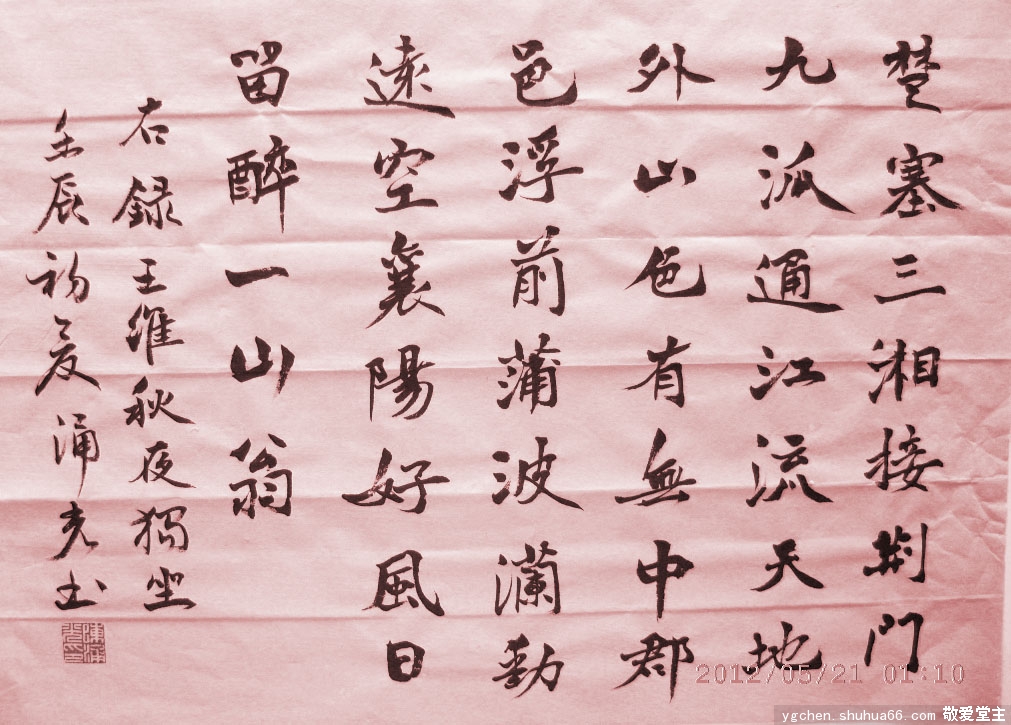 楚塞三湘接荆門
九派通江流天地
外山色有無中郡
邑浮前蒲波瀾動
遠空襄陽好風日
留醉一山翁
右録王維秋夜獨坐
壬辰初夏涌光书
2012/05/21 01:10
ygchen.shuhua66.com 敬爱堂主